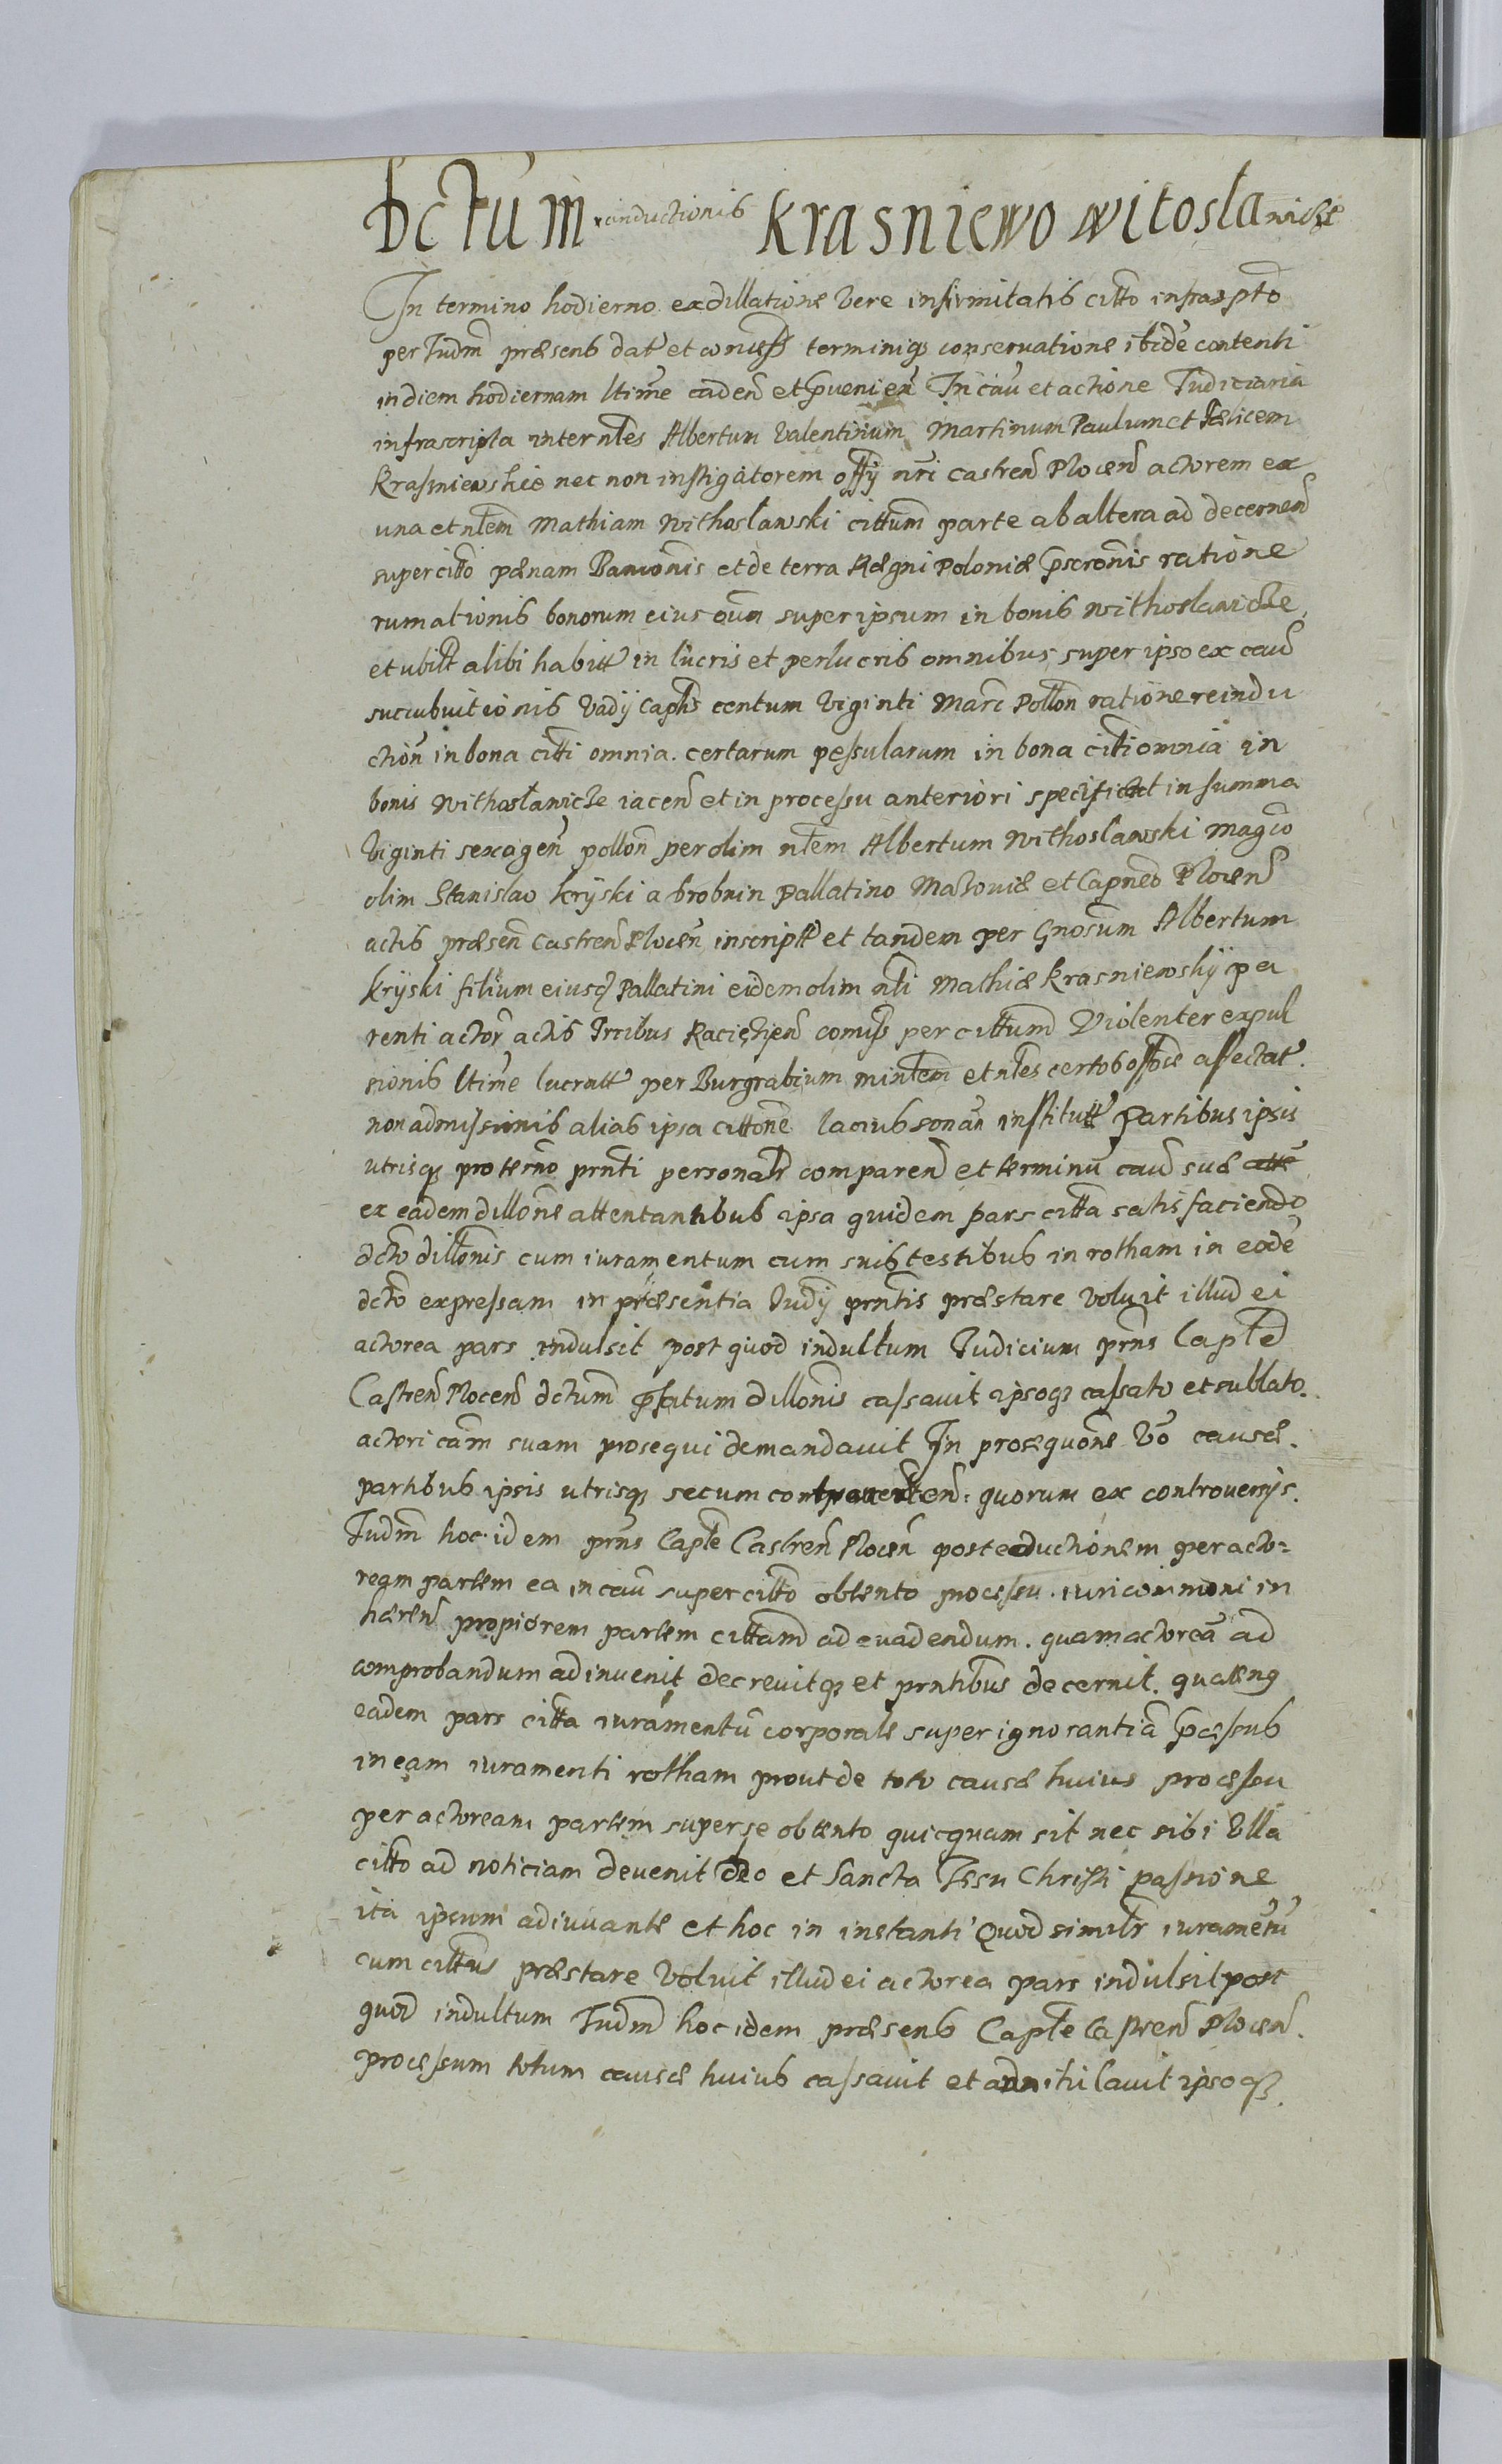 Dctum reinductionis Krasniewo Witoslawicze
In termino hodierno ex dillatione vere infirmitatis citto infrasꝑto
per Iudm præsens dat et concess terminiq3 conservatione ibide contenti
in diem hodiernam ltime caden et ꝓvenien In cau et actione Iudiciaria
infrascripta inter nles Albertum Valentinum Martinum Paulum et Fælicem
Krasniewskie nec non instigatorem offij nri Castren Plocen actorem ex
una et nlem Mathiam Withoslawski cittum parte ab altera ad decernen
super citto pænam Bannionis et de terra Regni Poloniæ ꝓscronis ratione
rumationis bonorum eius oum super ipsum in bonis Withoslawicze
et ubilt alibi habitt in lucris et perlucris omnibus super ipso ex cau
succubuitionis vadij Captis centum viginti Marc Pollon ratione reindu
ction in bona citti omnia. certarum pessularum in bona citi omnia in
bonis Withoslawicze iacen et in processu anteriori specificat in summa
viginti sexagen pollon per olim nlem Albertum Withoslawski Magco
olim Stanislao Kryski a Drobnin Pallatino Mazoviæ et Capneo Plocen
actis præsen Castren Plocen inscriptt et tandem per Gnosum Albertum
Kryski filium eiusq3 Pallatini eidem olim nli Mathiæ Krasniewskij pa
renti actor actis Trribus Raciezien comiss per cittum Violenter expul
sionis ltime lucratt per Burgrabium minlem et nles certos offose affectat.
non admissionis alias ipsa cittone lacius sonan institutt Partibus ipsis
utrisq3 pro termo prnti personalr comparen et terminu cau suæ
ex eadem dillone attentantibus ipsa quidem pars citta satisfaciendo
dcto dillonis cum iuramentum cum suis testibus in rotham in eode
dcto expressam in præsentia Iudij prntis præstare voluit illud ei
actorea pars indulsit post quod indultum Iudicium prns Capte
Castren Plocen dctum ꝓfatum dillonis cassavit ipsoq3 cassato et sublato.
actori cam suam prosequi demandavit In prosequone vo causæ.
partibus ipsis utrisq3 secum controverten: quorum ex controversijs.
Iudm hoc idem prns Capte Castren Plocen post eductionem per acto=
ream partem ea in cau super citto obtento processu. iuri communi in
hæren propiorem partem cittam ad evadendum. quam actorea ad
comprobandum adinvenit decrevitq3 et prntibus decernit. quateng
eadem pars citta iuramentu corporale super ignorantia ꝓcessus
in eam iuramenti rotham prout de toto causæ huius processu
per actoream partem super se obtento quicquam sit nec sibi ulla
citto ad noticiam devenit deo et Sancta Iesu Christi passione
ita ipsum adiuvante et hoc in instanti Quod similr iurametu
cum cittus præstare voluit illud ei actorea pars indulsit post
quod indultum Iudm hoc idem præsens Capte Castren Plocen.
processum totum causæ huius cassavit et annihilavit ipsoq3.